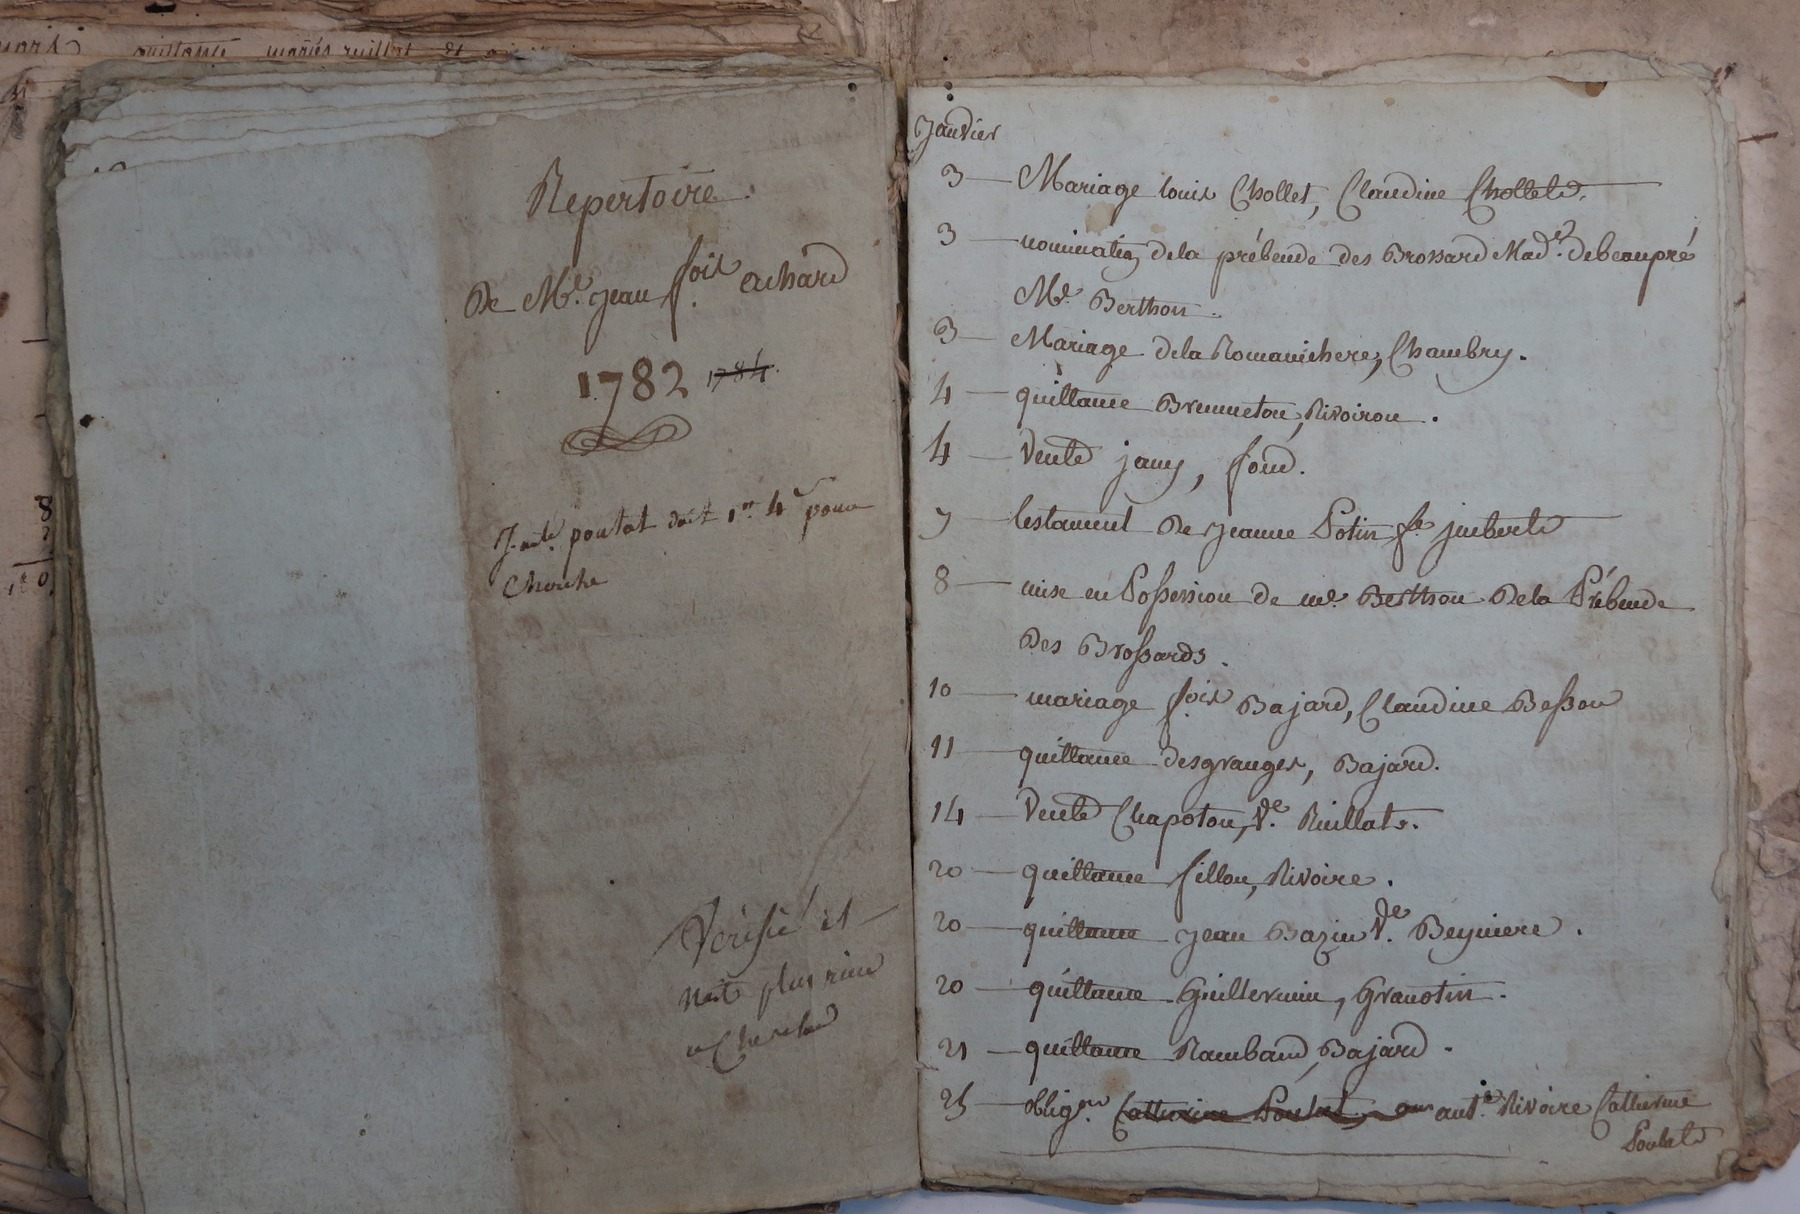 quittance mariés ruillat et
Repertoire.
De Me. jean fois. achard
1782 1784.
J. ante. poulat doit 1er 4 pour
Cherche
Vérifié et
n'est plus rien
a Cherche
janvier
3 — Mariage louis Chollet, Claudine Chollet.
3 — nomination de la prébende des Brossard Made. de beaupré
Me. Berthon.
3 — Mariage de la Romanichere, Chambry.
4 — quittance Brunneton, Rivoiron.
4 — Vente jamy, fond.
7 — testament de jeanne Potin fe. jmbert
8 — mise en Possession de me. Berthon de la Prébende
des Brossards.
10 — mariage fois. Bajard, Claudine Besson
11 — quittance desgranges, Bajard.
14 — Vente Chapoton, Ve. Ruillat.
20 — quittance fillon, Rivoire.
20 — quittance jean Bazin Ve. Beyniere.
20 — quittance Guillermin, Granotin.
21 — quittance Rambaud, Bajard.
25 — obligon. Catherine Poulat, ant.e Rivoire Catherine
Poulat
8
0